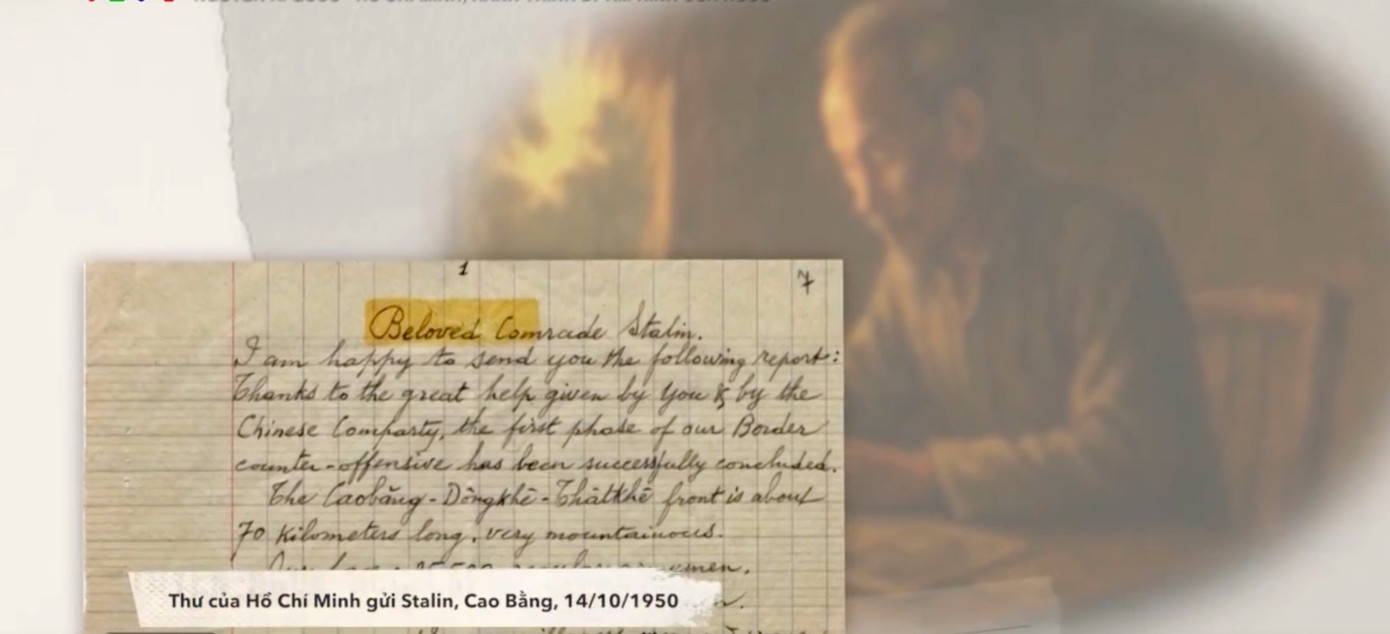 1
7
Beloved Comrade Stalin.
I am happy to send you the following report:
Thanks to the great help given by you & by the
Chinese Comparty, the first phase of our Border
counter-offensive has been successfully concluded.
The Caobăng - Dôngkhê - Thâtkhê front is about
70 Kilometers long, very mountainous.
Thư của Hồ Chí Minh gửi Stalin, Cao Bằng, 14/10/1950